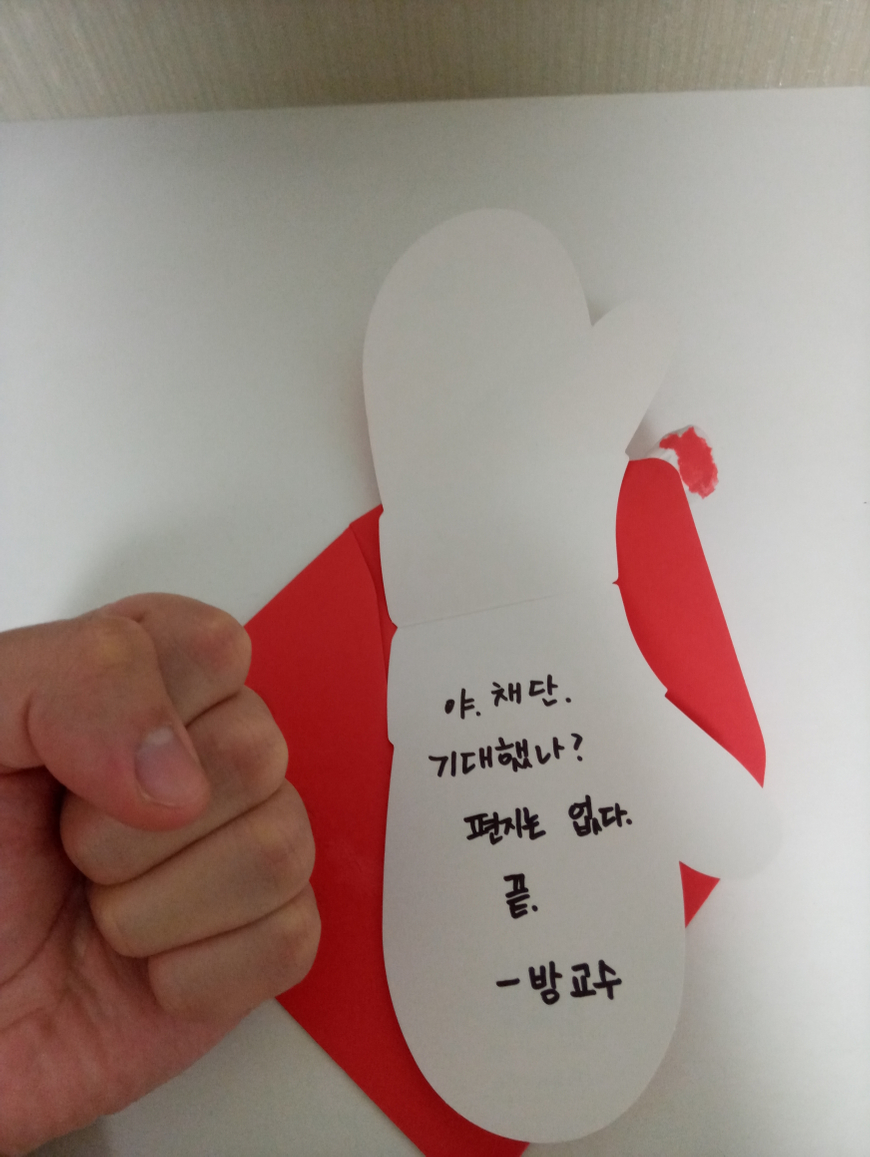 야. 채단.
기대했나?
편지는 없다.
끝.
- 방교수